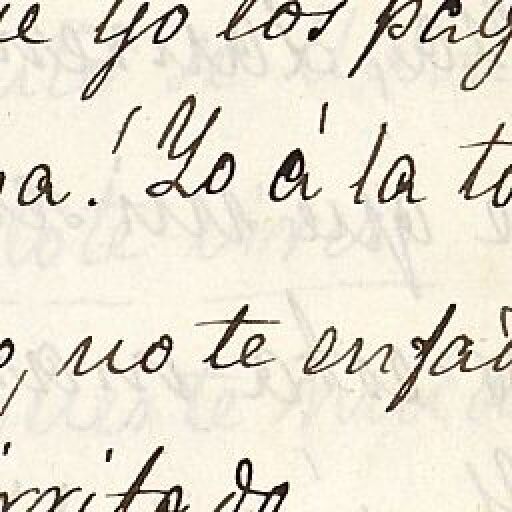 ue yo los pag
a! Yo á la to
o, no te enfad
irritado